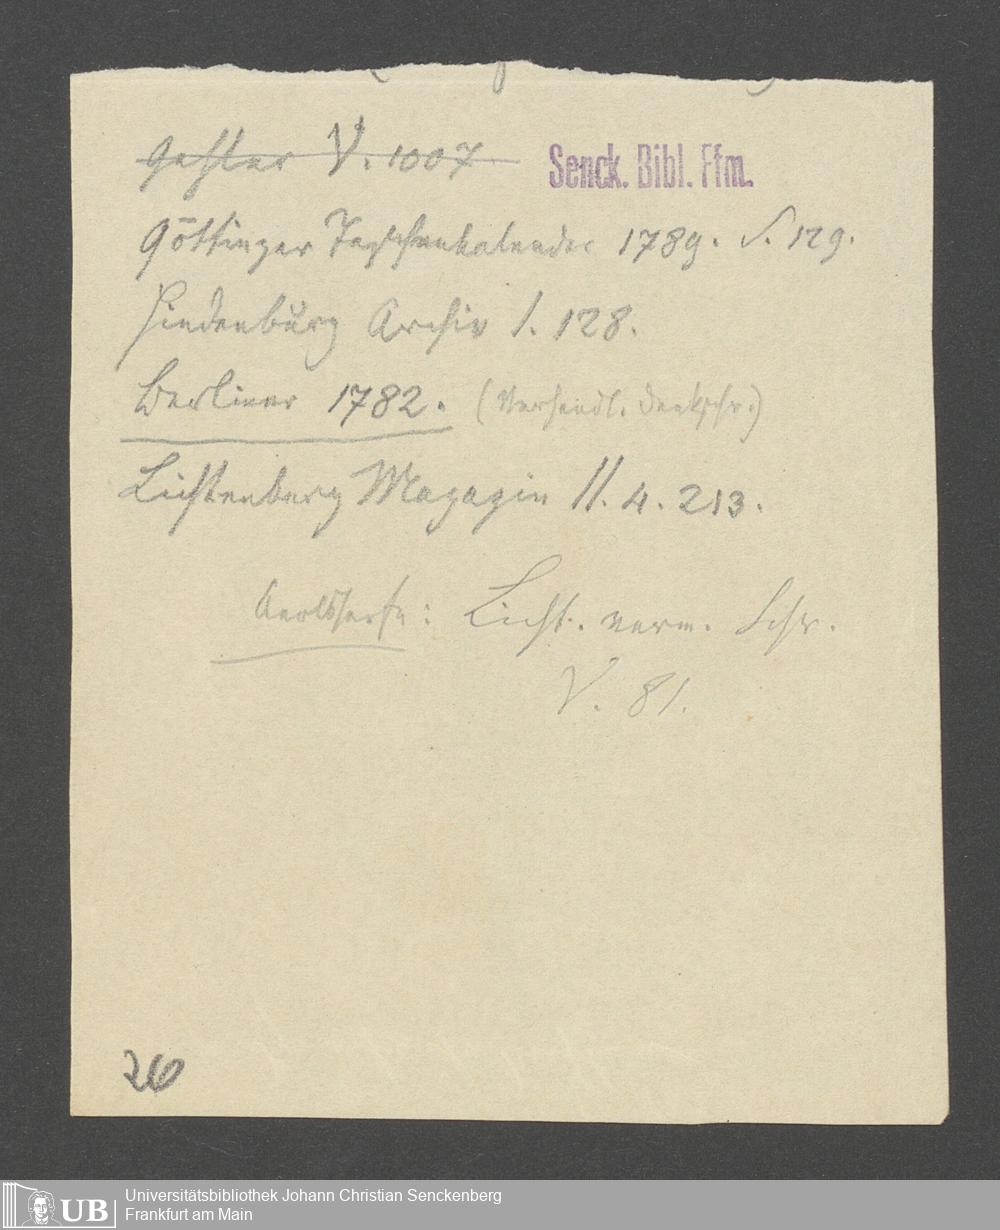 Gehler V. 1007.
Senck. Bibl. Ffm.
Göttinger Taschenkalender 1789. S. 129.
Hindenburg Archiv I. 128.
Berliner 1782. (Verhandl. Denkschr.)
Lichtenberg Magazin II. 4. 213.
Aeolsharfe: Licht. verm. Schr.
V. 81.
26
UB
Universitätsbibliothek Johann Christian Senckenberg
Frankfurt am Main